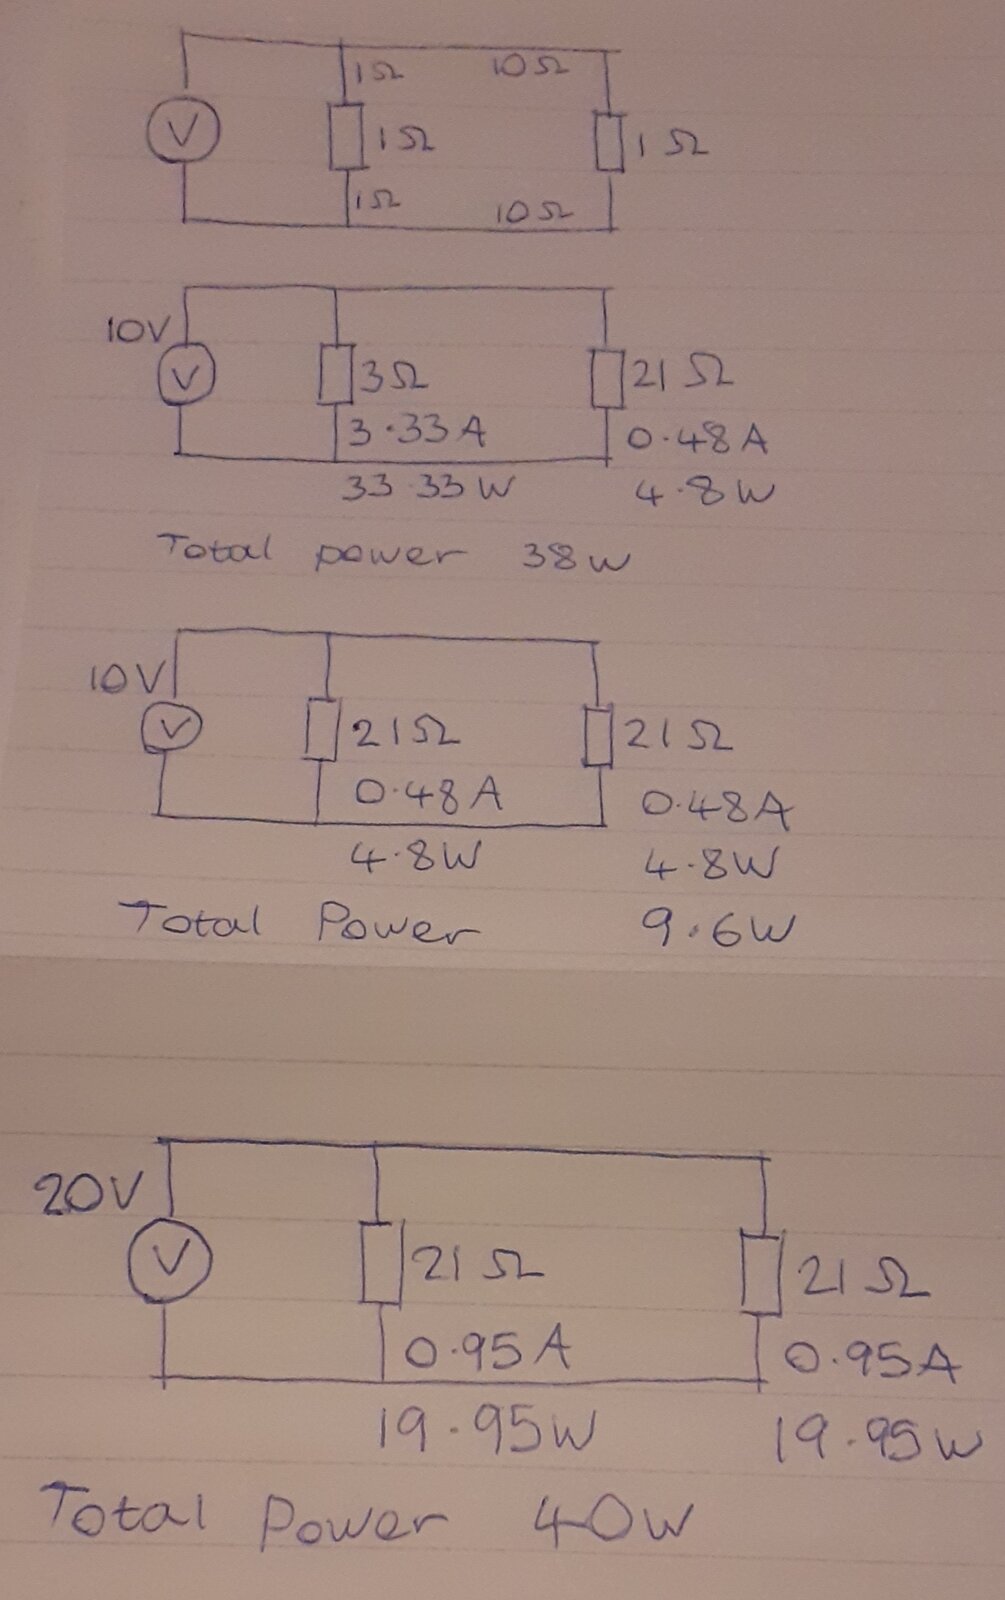 1Ω 10Ω
V 1Ω 1Ω
1Ω 10Ω
10V
V 3Ω 21Ω
3.33A 0.48A
33.33W 4.8W
Total power 38W
10V
V 21Ω 21Ω
0.48A 0.48A
4.8W 4.8W
Total Power 9.6W
20V
V 21Ω 21Ω
0.95A 0.95A
19.95W 19.95W
Total Power 40W